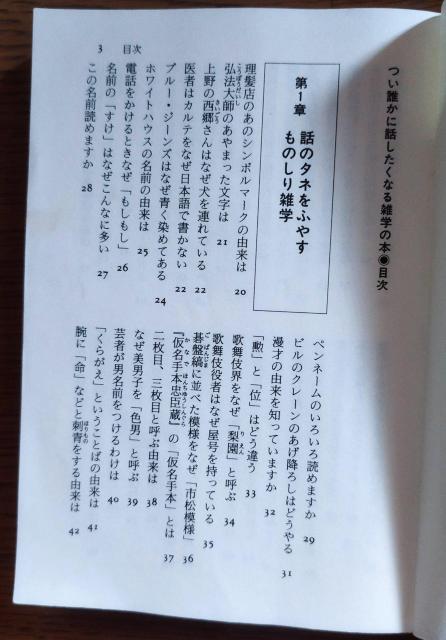 つい誰かに話したくなる雑学の本◉目次
第1章 話のタネをふやす
ものしり雑学
理髪店のあのシンボルマークの由来は 20
弘法大師のあやまった文字は 21
上野の西郷さんはなぜ犬を連れている 22
医者はカルテをなぜ日本語で書かない 22
ブルー・ジーンズはなぜ青く染めてある 24
ホワイトハウスの名前の由来は 25
電話をかけるときなぜ「もしもし」 26
名前の「すけ」はなぜこんなに多い 27
この名前読めますか 28
ペンネームのいろいろ読めますか 29
ビルのクレーンのあげ降ろしはどうやる 31
漫才の由来を知っていますか 32
「勲」と「位」はどう違う 33
歌舞伎界をなぜ「梨園」と呼ぶ 34
歌舞伎役者はなぜ屋号を持っている 35
碁盤縞に並べた模様をなぜ「市松模様」 36
『仮名手本忠臣蔵』の「仮名手本」とは 37
二枚目、三枚目と呼ぶ由来は 38
なぜ美男子を「色男」と呼ぶ 39
芸者が男名前をつけるわけは 40
「くらがえ」ということばの由来は 41
腕に「命」などと刺青をする由来は 42
3 目次